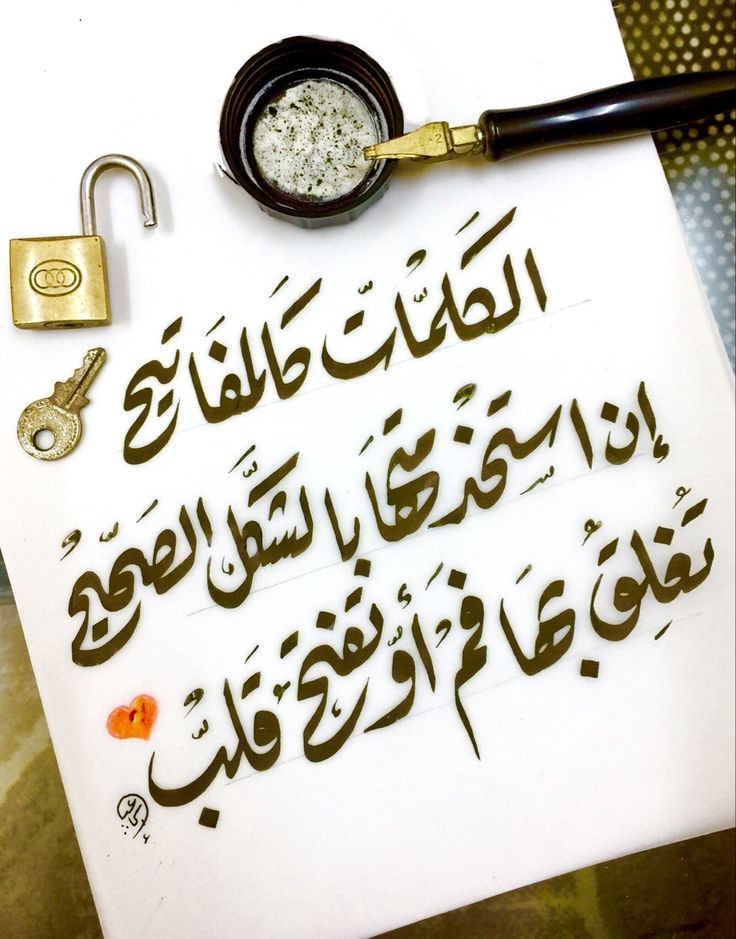 الكلمات كالمفاتيح
إن استخدمتها بالشكل الصحيح
تغلق بها فم أو تفتح قلب